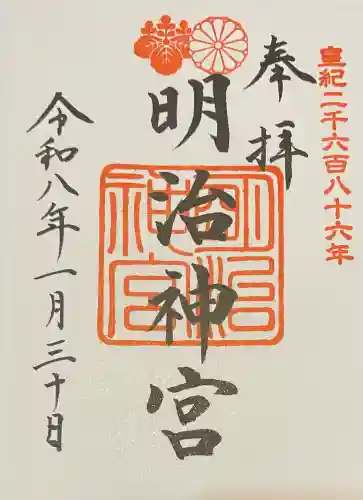 皇紀二千六百八十六年
奉拝
明治神宮
明治神宮
令和八年一月三十日